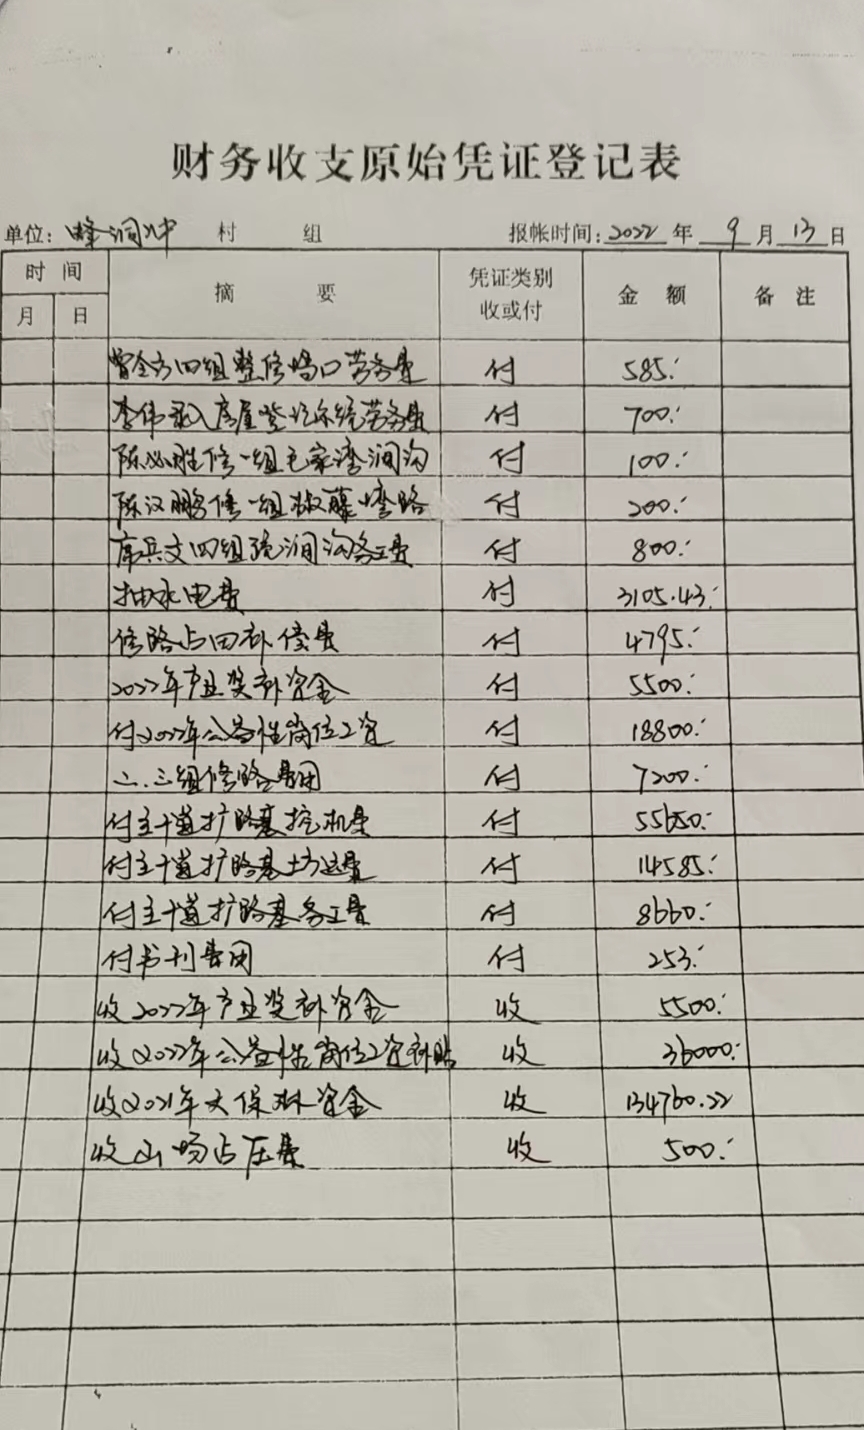 财务收支原始凭证登记表
单位: 峰洞冲 村 组 报帐时间: 2022 年 9 月 13 日
时 间 摘 要 凭证类别 收或付 金 额 备 注
月 日
曾全方四组整修塆口劳务费 付 585.
李伟录入房屋登记系统劳务费 付 700.
陈必胜修一组毛家湾涧沟 付 100.
陈汉鹏修一组椒藤塆路 付 200.
席兵文四组疏涧沟务工费 付 800.
抽水电费 付 3105.43
修路占田补偿费 付 4795.
2022年产业奖补资金 付 5500.
付2022年公益性岗位工资 付 18800.
二、三组修路费用 付 7200.
付主干道扩路基挖机费 付 55650.
付主干道扩路基土方运费 付 14585.
付主干道扩路基务工费 付 8660.
付书刊费用 付 253.
收2022年产业奖补资金 收 5500.
收2022年公益性岗位工资补贴 收 36000.
收2021年天保林资金 收 134760.22
收山场占压费 收 500.